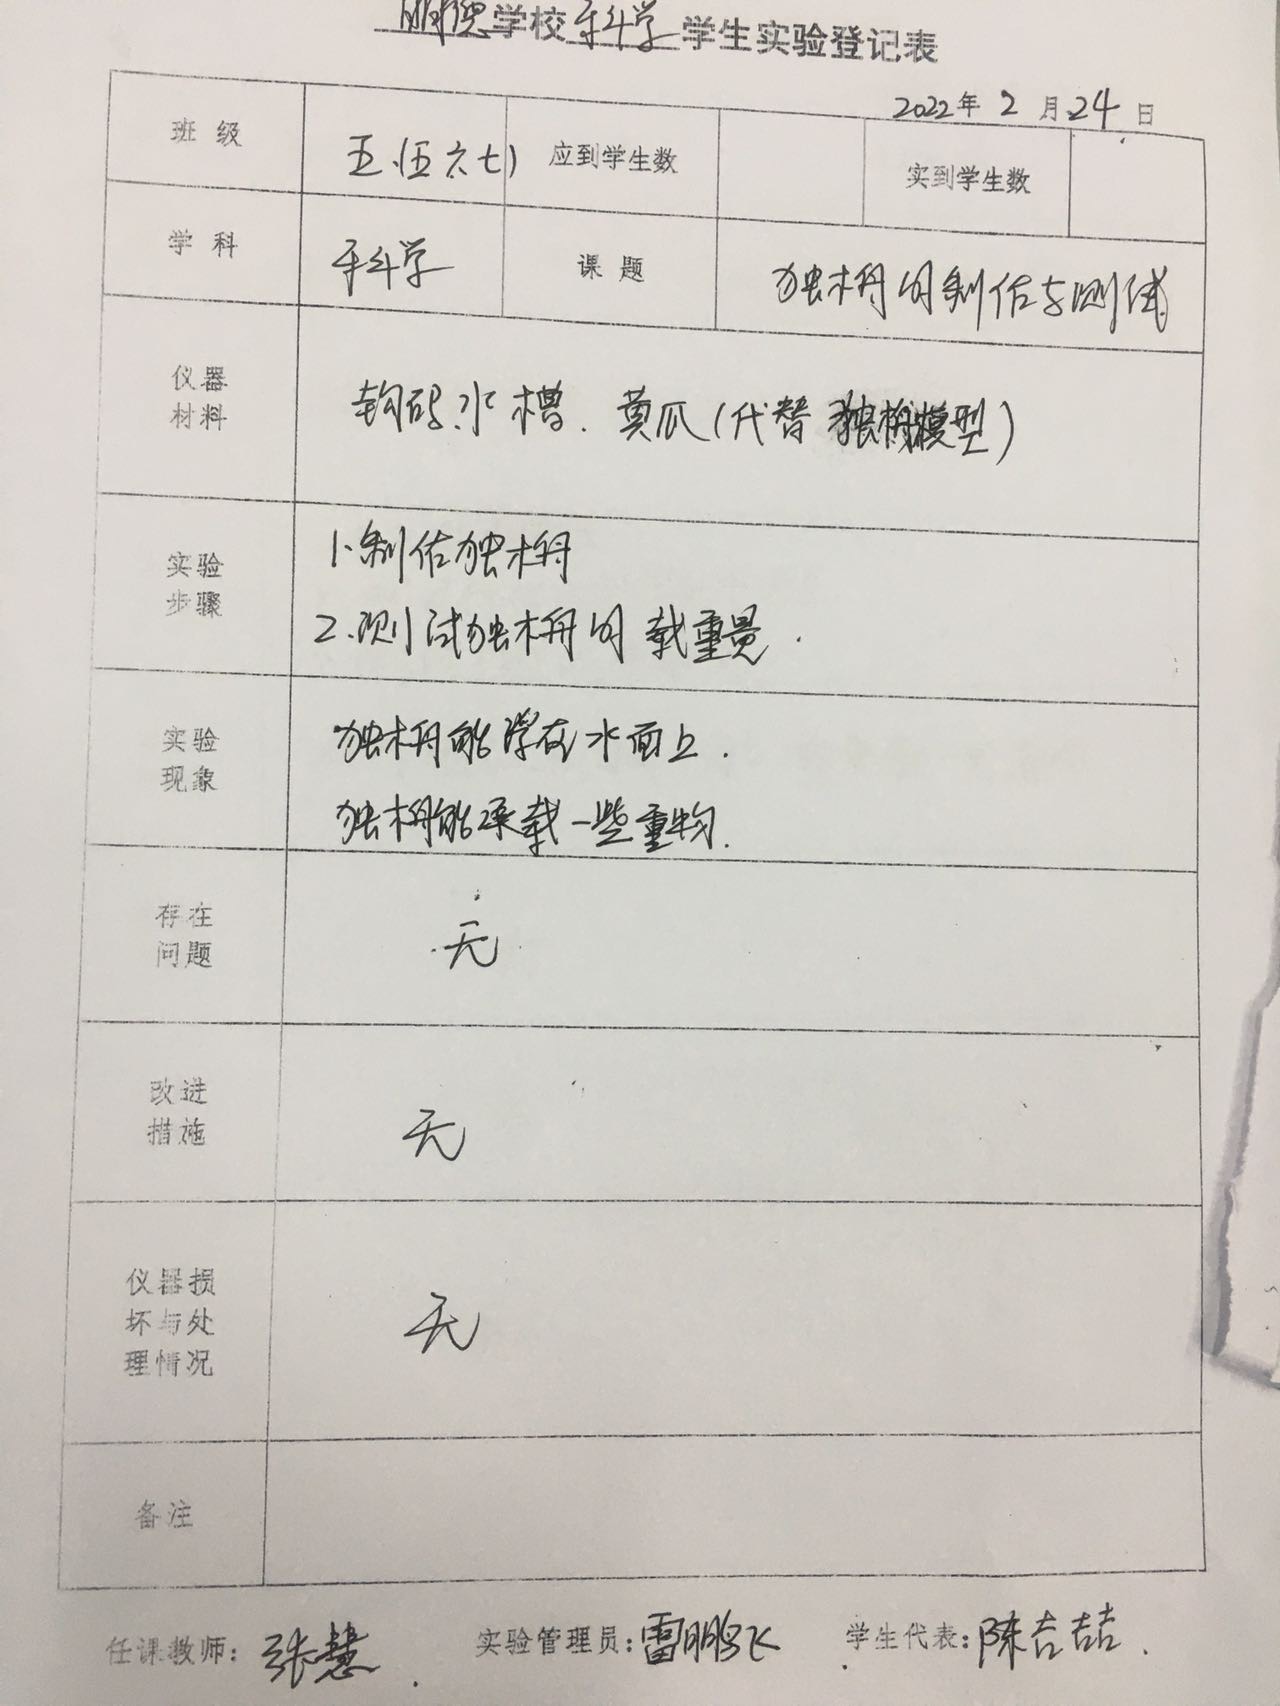 明德学校科学学生实验登记表
2022年2月24日
班级 五(五六七) 应到学生数 实到学生数
学科 科学 课题 独木舟的制作与测试
仪器
材料
钩码、水槽、黄瓜(代替独木舟模型)
实验
步骤
1.制作独木舟
2.测试独木舟的载重量.
实验
现象
独木舟能浮在水面上.
独木舟能承载一些重物.
存在
问题
无
改进
措施
无
仪器损
坏与处
理情况
无
备注
任课教师:张慧 实验管理员:雷鹏飞 学生代表:陈吉喆